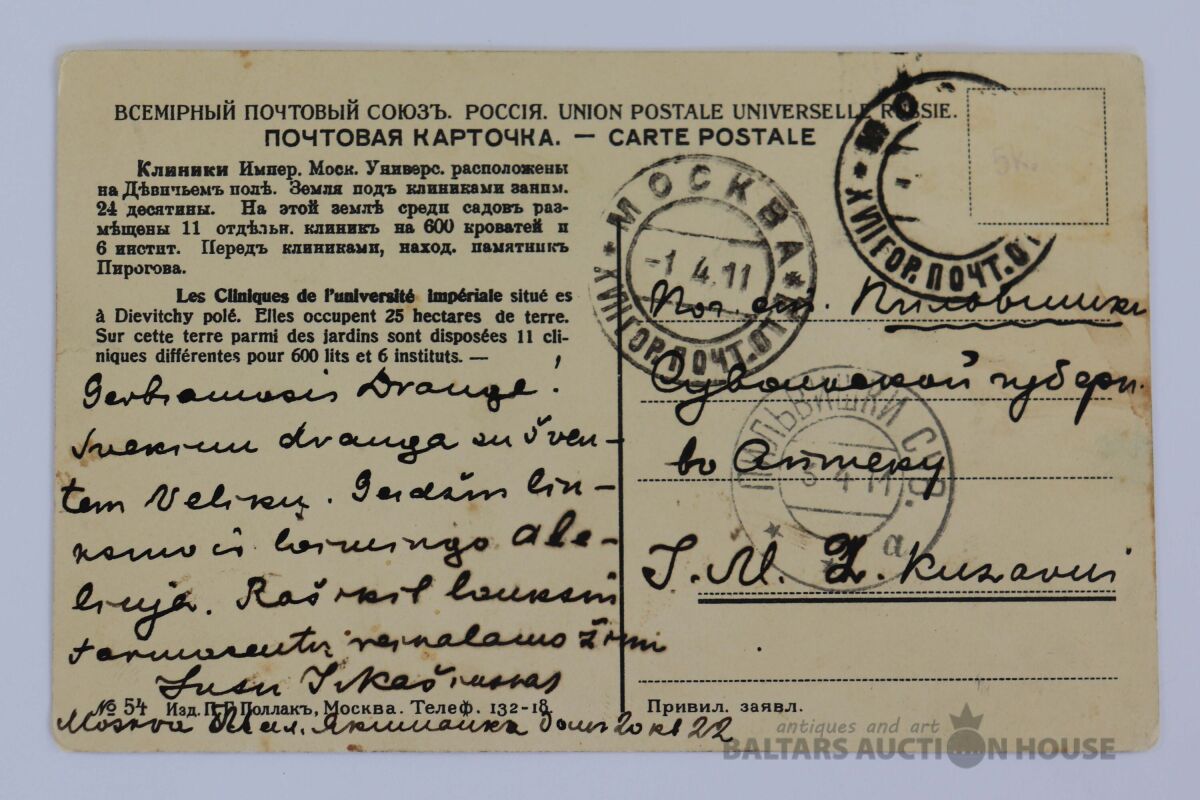 ВСЕМІРНЫЙ ПОЧТОВЫЙ СОЮЗЪ. РОССІЯ. UNION POSTALE UNIVERSELLE RUSSIE.
ПОЧТОВАЯ КАРТОЧКА. — CARTE POSTALE
Клиники Импер. Моск. Универс. расположены
на Дѣвичьемъ полѣ. Земля подъ клиниками заним.
24 десятины. На этой землѣ среди садовъ раз-
мѣщены 11 отдѣльн. клиникъ на 600 кроватей и
6 инстит. Передъ клиниками, наход. памятникъ
Пирогова.
Les Cliniques de l'université impériale situé es
à Dievitchy polé. Elles occupent 25 hectares de terre.
Sur cette terre parmi des jardins sont disposées 11 cli-
niques différentes pour 600 lits et 6 instituts. —
Gerbiamasis Drauge!
Sveikinu drauga su šven-
tem Velikų. Geidžiu lin-
ksmo ir laimingo Ale-
liuja. Raš
farmaceutų reikalamo
Jusu
Москва Мал. Якиманка домъ 20 кв 22
№ 54 Изд. П. Г. Поллакъ, Москва. Телеф. 132-18.
5к.
МОСКВА
-1 4.11
XVII ГОР. ПОЧТ. ОТ
XVII ГОР. ПОЧТ. ОТ
Поч. ст. Пильвишки
Сувалкской губерн.
ПИЛЬВИШКИ СУВ.
3 4 11
а
въ Аптеку
J. M. Z. Kuzavui
Привил. заявл.
antiques and art
BALTARS AUCTION HOUSE